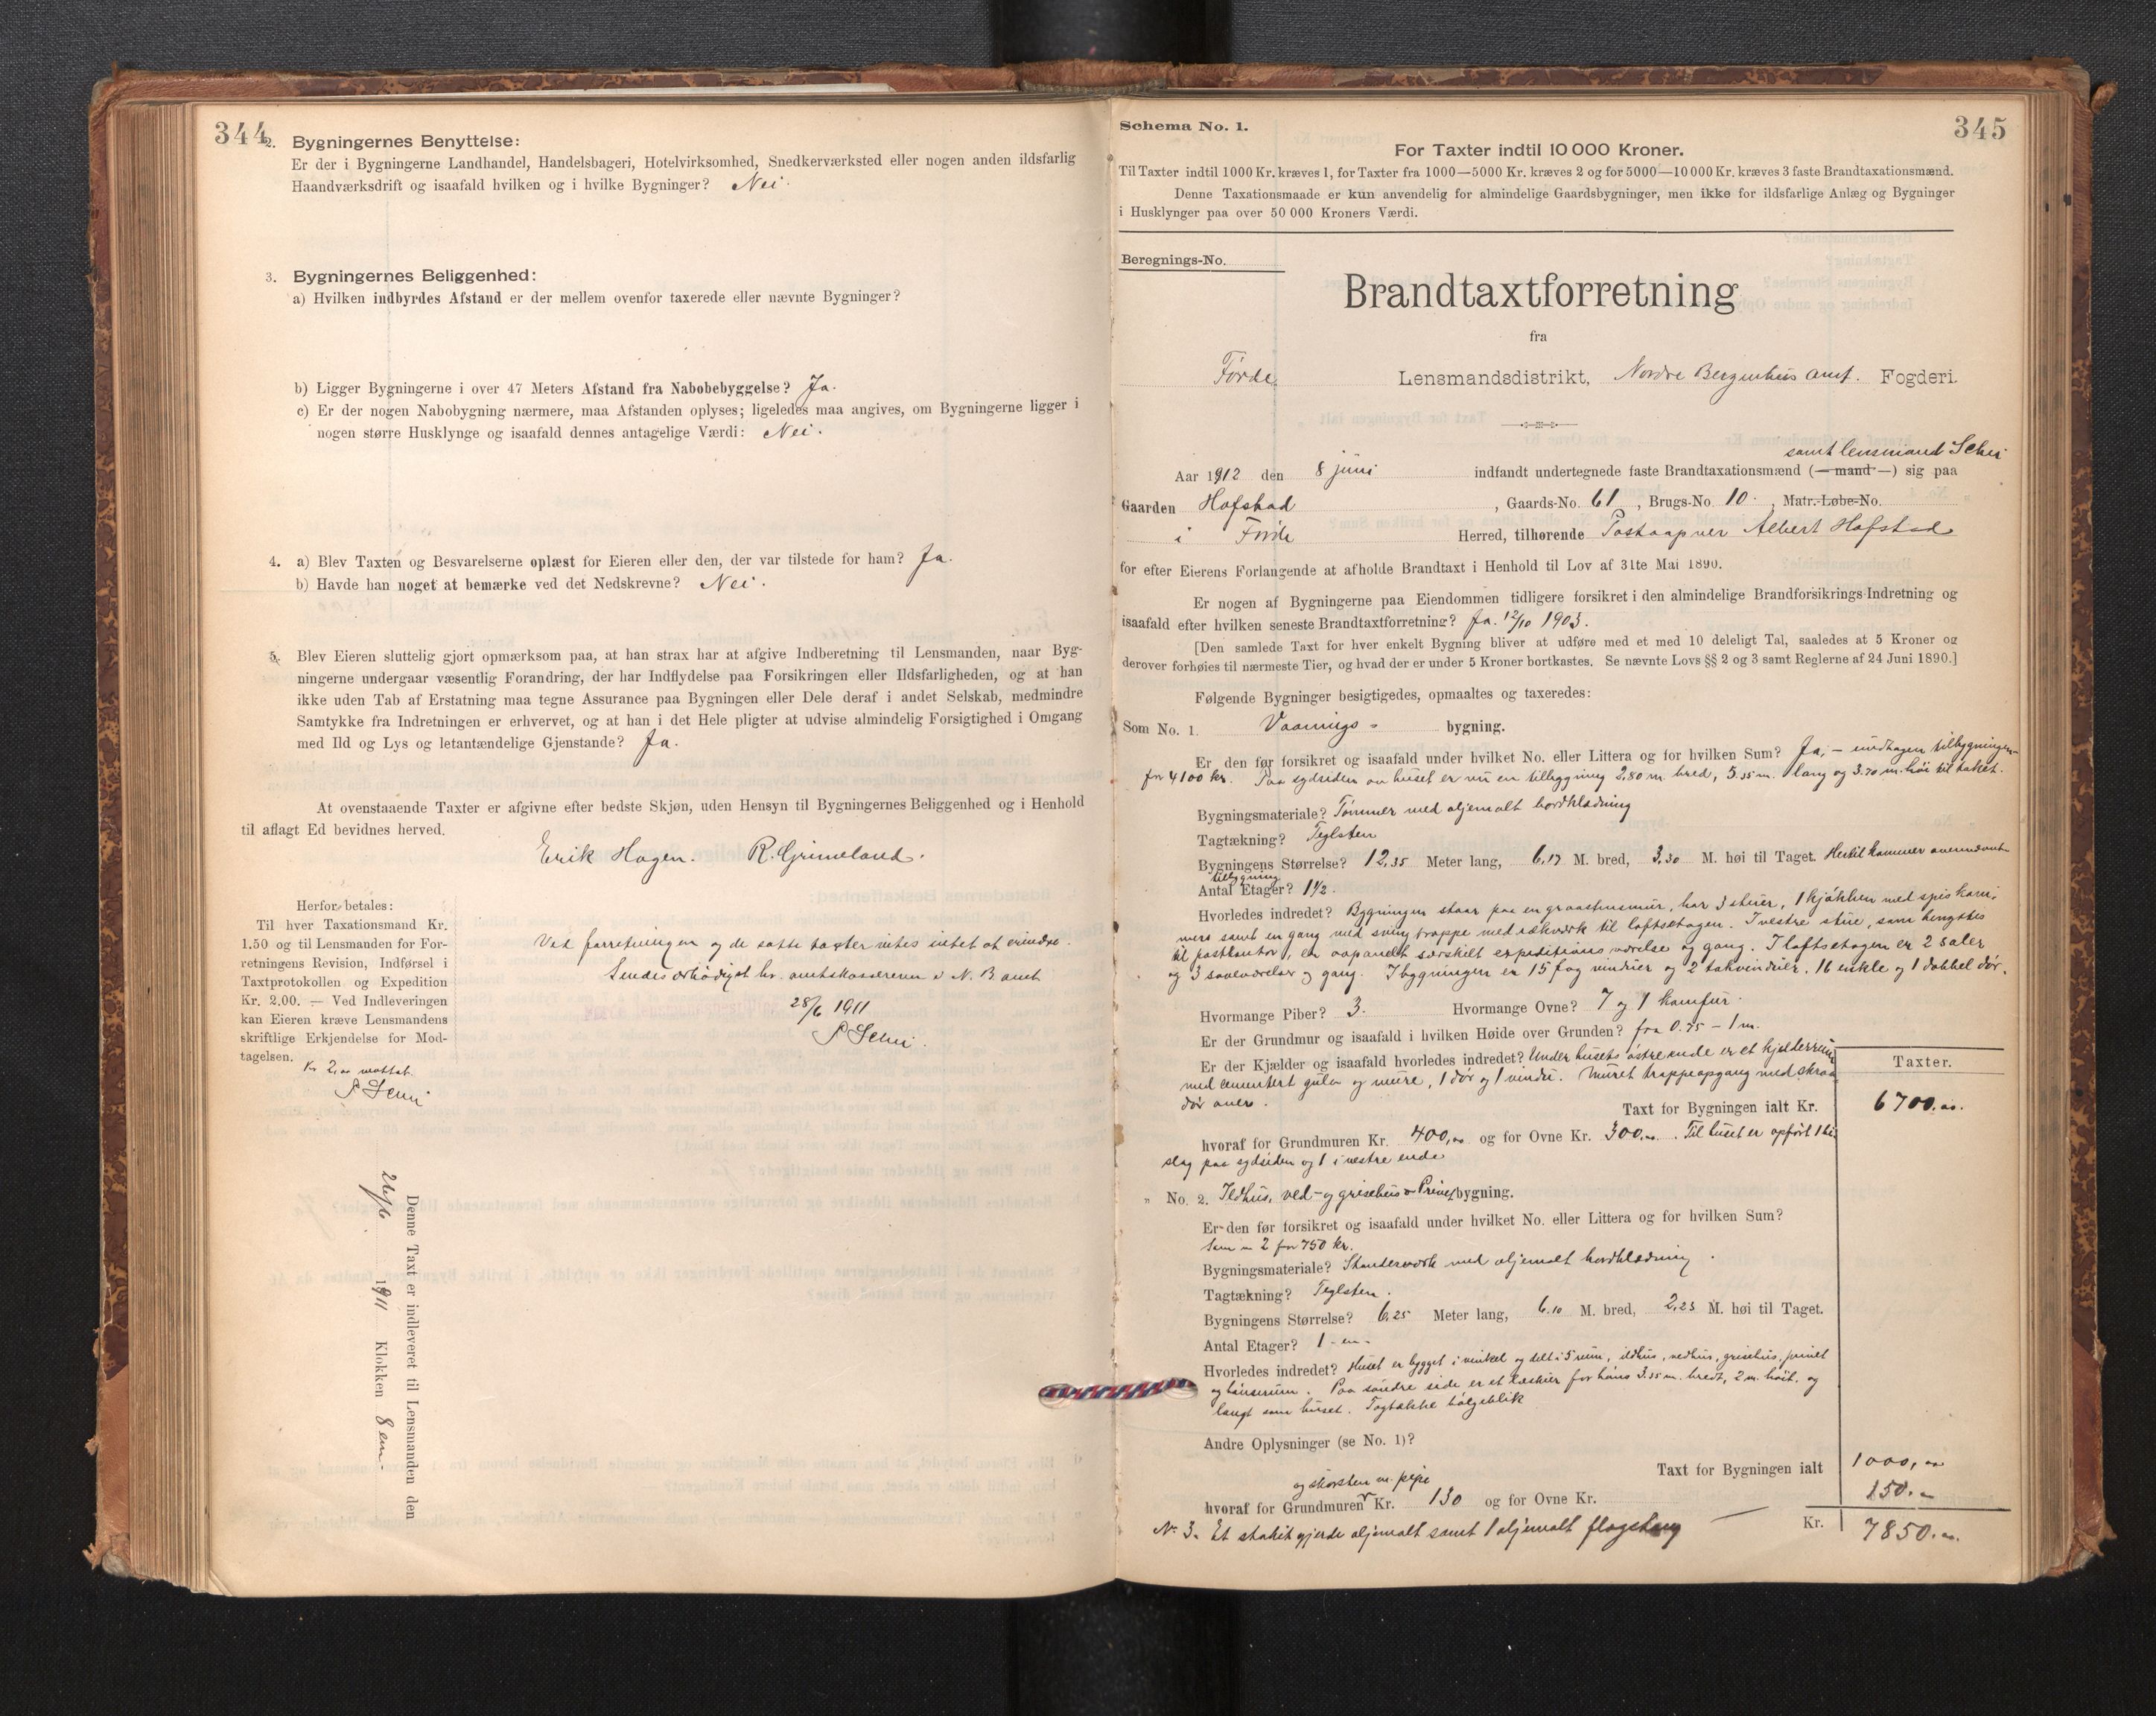 344
2. Bygningernes Benyttelse:
Er der i Bygningerne Landhandel, Handelsbageri, Hotelvirksomhed, Snedkerværksted eller nogen anden ildsfarlig
Haandværksdrift og isaafald hvilken og i hvilke Bygninger? Nei.
3. Bygningernes Beliggenhed:
a) Hvilken indbyrdes Afstand er der mellem ovenfor taxerede eller nævnte Bygninger?
b) Ligger Bygningerne i over 47 Meters Afstand fra Nabobebyggelse? Ja.
c) Er der nogen Nabobygning nærmere, maa Afstanden oplyses; ligeledes maa angives, om Bygningerne ligger i
nogen større Husklynge og isaafald dennes antagelige Værdi: Nei.
4. a) Blev Taxten og Besvarelserne oplæst for Eieren eller den, der var tilstede for ham? Ja.
b) Havde han noget at bemærke ved det Nedskrevne? Nei.
5. Blev Eieren sluttelig gjort opmærksom paa, at han strax har at afgive Indberetning til Lensmanden, naar Byg-
ningerne undergaar væsentlig Forandring, der har Indflydelse paa Forsikringen eller Ildsfarligheden, og at han
ikke uden Tab af Erstatning maa tegne Assurance paa Bygningen eller Dele deraf i andet Selskab, medmindre
Samtykke fra Indretningen er erhvervet, og at han i det Hele pligter at udvise almindelig Forsigtighed i Omgang
med Ild og Lys og letantændelige Gjenstande? Ja.
At ovenstaaende Taxter er afgivne efter bedste Skjøn, uden Hensyn til Bygningernes Beliggenhed og i Henhold
til aflagt Ed bevidnes herved.
Erik Hagen. R. Grimeland.
Herfor betales:
Til hver Taxationsmand Kr.
1.50 og til Lensmanden for For-
retningens Revision, Indførsel i
Taxtprotokollen og Expedition
Kr. 2.00. — Ved Indleveringen
kan Eieren kræve Lensmandens
skriftlige Erkjendelse for Mod-
tagelsen.
Kr 2,00 mottat.
S Schei
Ved forretningen og de satte taxter vites intet at erindre.
Sendes ærbødigst hr. amtskassereren i N. B amt
28/6 1911
S Schei.
Denne Taxt er indleveret til Lensmanden den
26/6 1911 Klokken 8 em.
Schema No. 1.
345
For Taxter indtil 10 000 Kroner.
Til Taxter indtil 1000 Kr. kræves 1, for Taxter fra 1000—5000 Kr. kræves 2 og for 5000—10 000 Kr. kræves 3 faste Brandtaxationsmænd.
Denne Taxationsmaade er kun anvendelig for almindelige Gaardsbygninger, men ikke for ildsfarlige Anlæg og Bygninger
i Husklynger paa over 50 000 Kroners Værdi.
Beregnings-No.
Brandtaxtforretning
fra
Førde Lensmandsdistrikt, Nordre Bergenhus amt. Fogderi.
samt lensmand Schei
Aar 1912 den 8 juni indfandt undertegnede faste Brandtaxationsmænd (—mand—) sig paa
Gaarden Hofstad, Gaards-No. 61, Brugs-No. 10., Matr.-Løbe-No.
i Førde Herred, tilhørende Postaapner Albert Hofstad
for efter Eierens Forlangende at afholde Brandtaxt i Henhold til Lov af 31te Mai 1890.
Er nogen af Bygningerne paa Eiendommen tidligere forsikret i den almindelige Brandforsikrings-Indretning og
isaafald efter hvilken seneste Brandtaxtforretning? Ja. 12/10 1903.
[Den samlede Taxt for hver enkelt Bygning bliver at udføre med et med 10 deleligt Tal, saaledes at 5 Kroner og
derover forhøies til nærmeste Tier, og hvad der er under 5 Kroner bortkastes. Se nævnte Lovs §§ 2 og 3 samt Reglerne af 24 Juni 1890.]
Følgende Bygninger besigtigedes, opmaaltes og taxeredes:
Som No. 1. Vaanings- bygning.
Er den før forsikret og isaafald under hvilket No. eller Littera og for hvilken Sum? Ja, — undtagen tilbygningen
for 4100 kr. Paa sydsiden av huset er nu en tilbygning 2,80 m. bred, 5.55 m. lang og 3.70 m. høi til taket.
Bygningsmateriale? Tømmer med oljemalt bordklædning
Tagtækning? Teglsten
Bygningens Størrelse? 12,35 Meter lang, 6,17 M. bred, 3,30 M. høi til Taget. Hertil kommer ovennævnte
tilbygning
Antal Etager? 1½.
Hvorledes indredet? Bygningen staar paa en graastensmur, har 3 stuer, 1 kjøkken med spiskam-
mers samt en gang med svingtrappe med rækværk til loftsetagen. I vestre stue, som benyttes
til postkontor, er avpanelt særskilt expeditionsværelse og gang. I loftsetagen er 2 saler
og 3 soveværelser og gang. I bygningen er 15 fag vinduer og 2 takvinduer. 16 enkle og 1 dobbel dør.
Hvormange Piber? 3. Hvormange Ovne? 7 og 1 komfur.
Er der Grundmur og isaafald i hvilken Høide over Grunden? fra 0.75 – 1 m.
Er der Kjælder og isaafald hvorledes indredet? Under husets østre ende er et kjelderrum
med cementert gulv og mure, 1 dør og 1 vindu. Muret trappeopgang med skraa
dør over.
Taxter.
Taxt for Bygningen ialt Kr. 6700.00.
hvoraf for Grundmuren Kr. 400,00 og for Ovne Kr. 300,00. Til huset er opført 1 bi-
slag paa sydsiden og 1 i vestre ende
„ No. 2. Ildhus, ved- og grisehus o Privet bygning.
Er den før forsikret og isaafald under hvilket No. eller Littera og for hvilken Sum?
Som n 2 for 750 kr.
Bygningsmateriale? Standerverk med oljemalt bordklædning.
Tagtækning? Teglsten.
Bygningens Størrelse? 6,25 Meter lang, 6.10 M. bred, 2,25 M. høi til Taget.
Antal Etager? 1 – en –
Hvorledes indredet? Huset er bygget i vinkel og delt i 5 rum, ildhus, vedhus, grisehus, privet
og hønserum. Paa søndre side er et skur for høns 3.35 m. bredt, 2 m. høit, og
langt som huset. Tagtække bølgeblik
Andre Oplysninger (se No. 1)?
Taxt for Bygningen ialt 1000,00
og skorsten m. pipe
hvoraf for Grundmuren Kr. 130 og for Ovne Kr. 150.–
No. 3. Et stakitgjerde oljemalt samt 1 oljemalt flagstang — Kr. 7850.00.